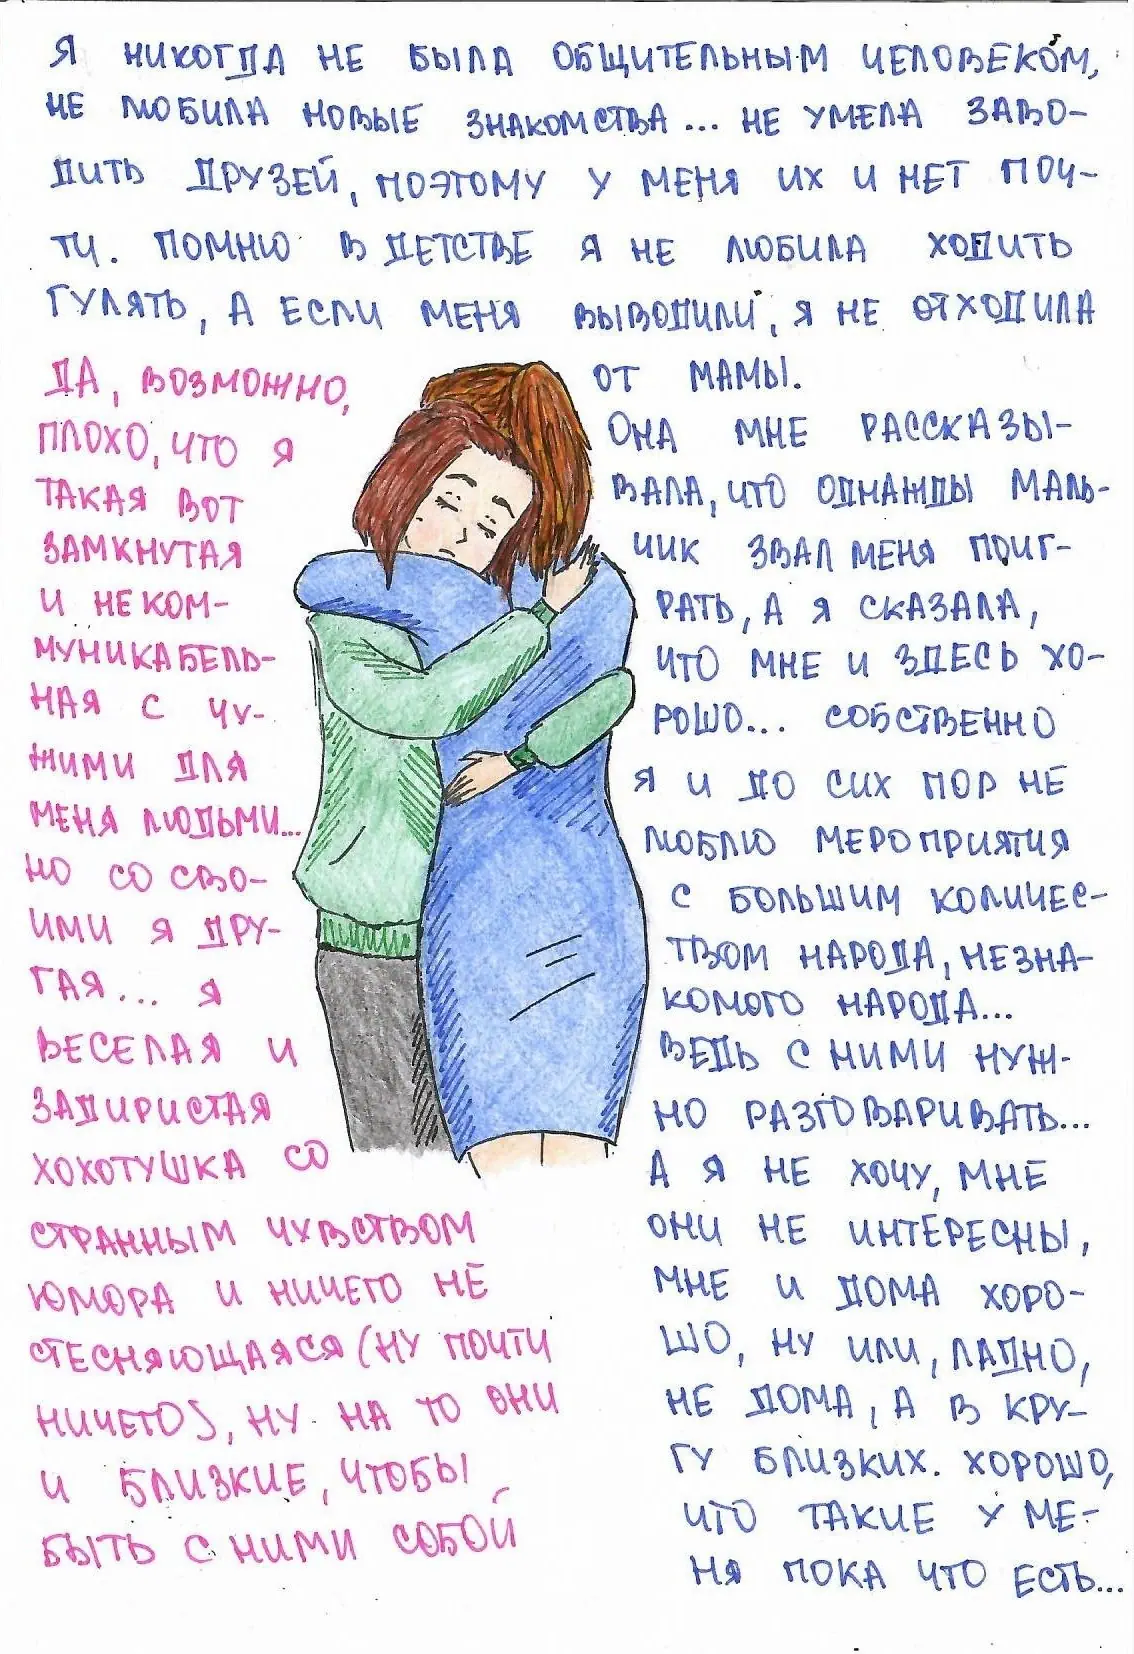 Я НИКОГДА НЕ БЫЛА ОБЩИТЕЛЬНЫМ ЧЕЛОВЕКОМ,
НЕ ЛЮБИЛА НОВЫЕ ЗНАКОМСТВА... НЕ УМЕЛА ЗАВО-
ДИТЬ ДРУЗЕЙ, ПОЭТОМУ У МЕНЯ ИХ И НЕТ ПОЧ-
ТИ. ПОМНЮ В ДЕТСТВЕ Я НЕ ЛЮБИЛА ХОДИТЬ
ГУЛЯТЬ, А ЕСЛИ МЕНЯ ВЫВОДИЛИ, Я НЕ ОТХОДИЛА
ОТ МАМЫ.
ОНА МНЕ РАССКАЗЫ-
ВАЛА, ЧТО ОДНАЖДЫ МАЛЬ-
ЧИК ЗВАЛ МЕНЯ ПОИГ-
РАТЬ, А Я СКАЗАЛА,
ЧТО МНЕ И ЗДЕСЬ ХО-
РОШО... СОБСТВЕННО
Я И ДО СИХ ПОР НЕ
ЛЮБЛЮ МЕРОПРИЯТИЯ
С БОЛЬШИМ КОЛИЧЕС-
ТВОМ НАРОДА, НЕЗНА-
КОМОГО НАРОДА...
ВЕДЬ С НИМИ НУЖ-
НО РАЗГОВАРИВАТЬ...
А Я НЕ ХОЧУ, МНЕ
ОНИ НЕ ИНТЕРЕСНЫ,
МНЕ И ДОМА ХОРО-
ШО, НУ ИЛИ, ЛАДНО,
НЕ ДОМА, А В КРУ-
ГУ БЛИЗКИХ. ХОРОШО,
ЧТО ТАКИЕ У МЕ-
НЯ ПОКА ЧТО ЕСТЬ...
ДА, ВОЗМОЖНО,
ПЛОХО, ЧТО Я
ТАКАЯ ВОТ
ЗАМКНУТАЯ
И НЕКОМ-
МУНИКАБЕЛЬ-
НАЯ С ЧУ-
ЖИМИ ДЛЯ
МЕНЯ ЛЮДЬМИ...
НО СО СВО-
ИМИ Я ДРУ-
ГАЯ... Я
ВЕСЕЛАЯ И
ЗАДИРИСТАЯ
ХОХОТУШКА СО
СТРАННЫМ ЧУВСТВОМ
ЮМОРА И НИЧЕГО НЕ
СТЕСНЯЮЩАЯСЯ (НУ ПОЧТИ
НИЧЕГО), НУ НА ТО ОНИ
И БЛИЗКИЕ, ЧТОБЫ
БЫТЬ С НИМИ СОБОЙ